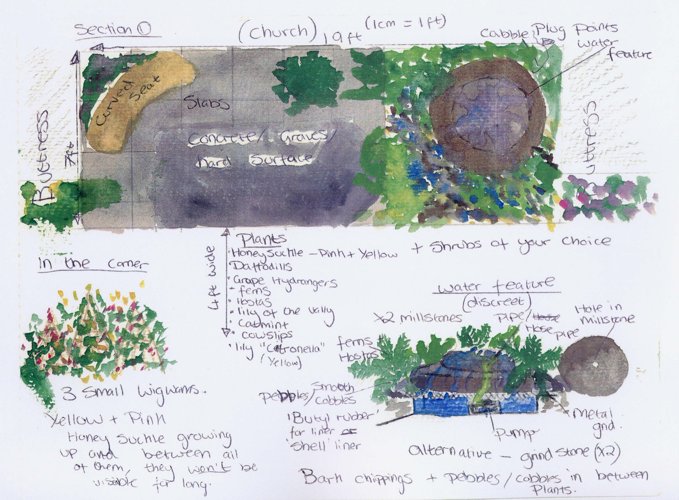 Section ①
(church) 19ft (1cm = 1ft)
Cabble, Plug Points
water
feature
Curved
Seat
Slabs
Concrete/Gravel/
hard Surface
Buttress
7ft
Buttress
4ft wide
Plants
• Honey Suckle - Pink + Yellow + Shrubs of your choice
• Daffodills
• Grape Hydrangers
• ferns
• Hostas
• lily of the vally
• Catmint
• cowslips
• lily "Citronella"
(Yellow)
In the corner
3 Small wigwams.
Yellow + Pink
Honey Suckle growing
up and between all
of them, they won't be
visable for long.
water feature
(discreet)
X2 millstones
Pipe/
Hose pipe
Hole in
millstone
ferns
Hostas
Pebbles/Smooth
Cobbles
'Butyl rubber
for liner or
'Shell' liner
Pump
Metal
grid.
alternative - grindstone (X2)
Bark chippings + Pebbles/cobbles in between
Plants.